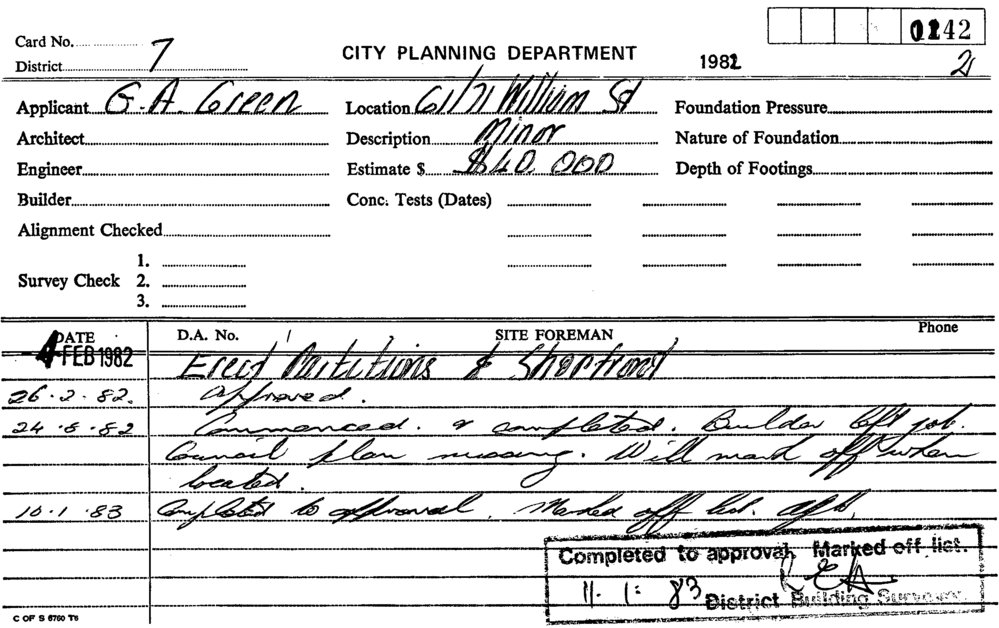 0242
Card No. 7
District
CITY PLANNING DEPARTMENT
1982
2
Applicant G. A. Green
Location 61/71 William St
Foundation Pressure
Architect
Description Minor
Nature of Foundation
Engineer
Estimate $ $40,000
Depth of Footings
Builder
Conc. Tests (Dates)
Alignment Checked
Survey Check
1.
2.
3.
DATE
D.A. No.
SITE FOREMAN
Phone
4 FEB 1982 Erect Partitions & Shopfront
26.2.82. Approved.
24.8.82 Commenced. & completed. Builder left job.
Council plan missing. Will mark off when
located.
10.1.83 Completed to approval. Marked off list.
Completed to approval. Marked off list.
11.1.83 District Building Surveyor.
C OF S 6760 T6